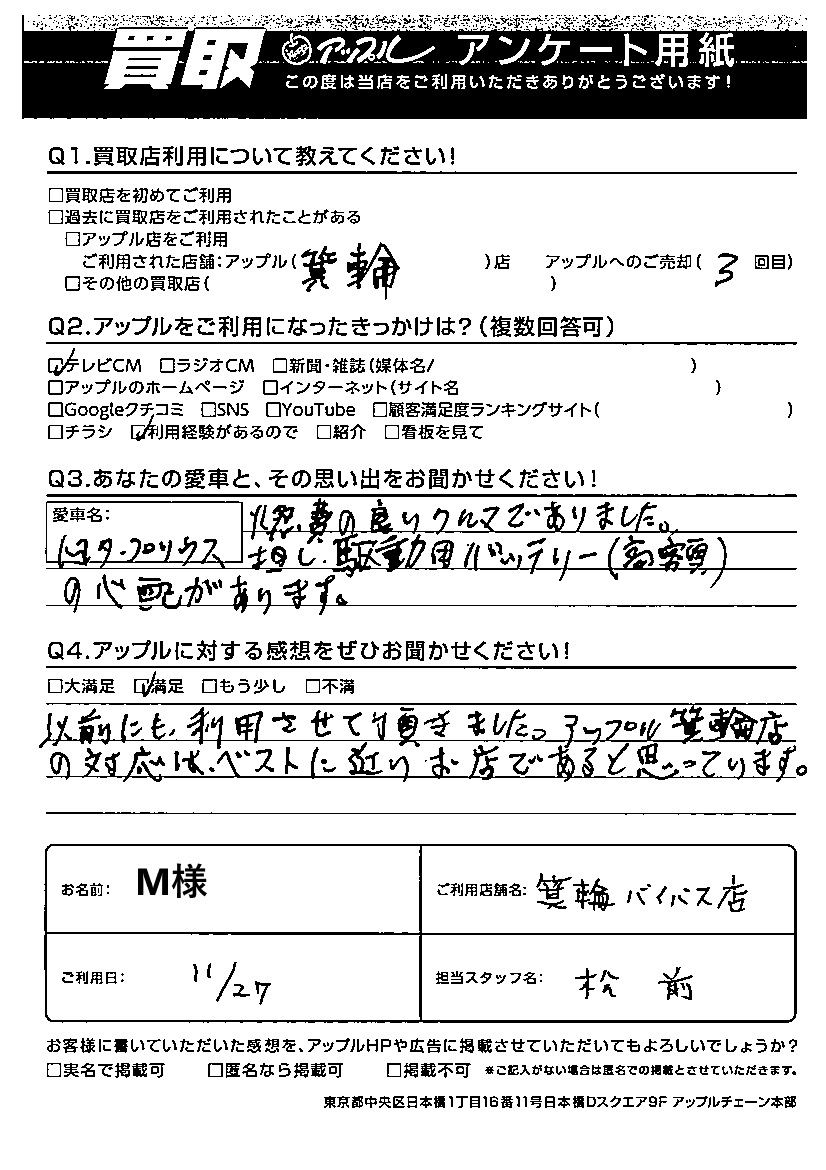 買取 アップル アンケート用紙
この度は当店をご利用いただきありがとうございます!
Q1.買取店利用について教えてください!
□買取店を初めてご利用
□過去に買取店をご利用されたことがある
□アップル店をご利用
ご利用された店舗:アップル(箕輪)店 アップルへのご売却(3回目)
□その他の買取店( )
Q2.アップルをご利用になったきっかけは?(複数回答可)
☑テレビCM □ラジオCM □新聞・雑誌(媒体名/ )
□アップルのホームページ □インターネット(サイト名 )
□Googleクチコミ □SNS □YouTube □顧客満足度ランキングサイト( )
□チラシ ☑利用経験があるので □紹介 □看板を見て
Q3.あなたの愛車と、その思い出をお聞かせください!
愛車名:
トヨタ・プリウス
燃費の良いクルマでありました。
担し、駆動用バッテリー(高額)
の心配があります。
Q4.アップルに対する感想をぜひお聞かせください!
□大満足 ☑満足 □もう少し □不満
以前にも、利用させて頂きました。アップル箕輪店
の対応は、ベストに近いお店であると思っています。
お名前: M様
ご利用店舗名: 箕輪バイパス店
ご利用日: 11/27
担当スタッフ名: 松前
お客様に書いていただいた感想を、アップルHPや広告に掲載させていただいてもよろしいでしょうか?
□実名で掲載可 □匿名なら掲載可 □掲載不可 ※ご記入がない場合は匿名での掲載とさせていただきます。
東京都中央区日本橋1丁目16番11号日本橋Dスクエア9F アップルチェーン本部